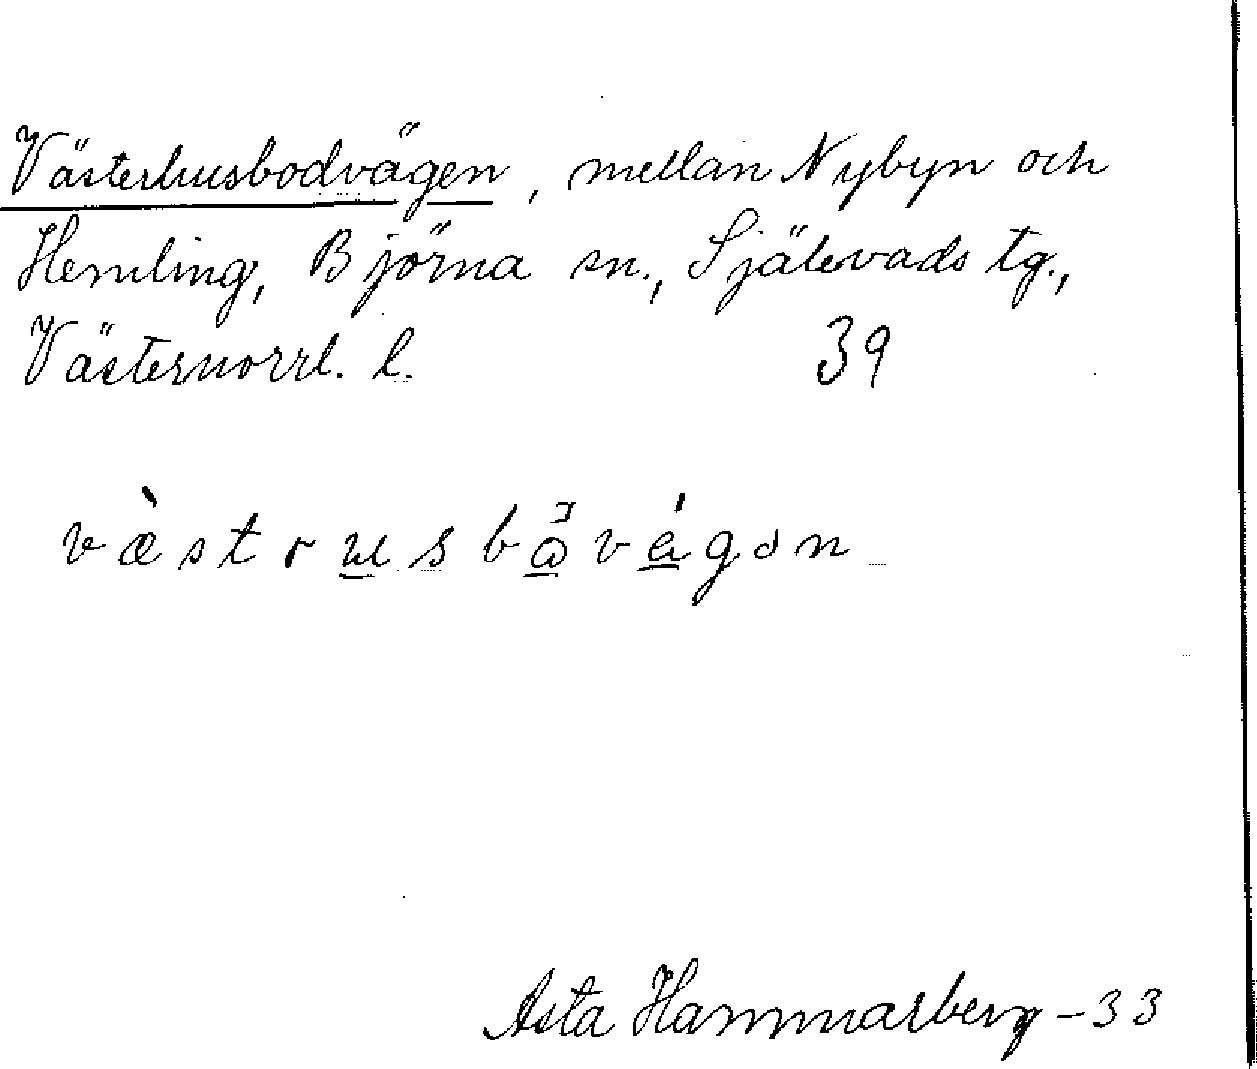 Västerhusbodvägen, mellan Nybyn och
Hemling, Björna sn., Själevads tg.,
Västernorrl. l. 39
væ̀strusbɷvägən
Asta Hammarberg -33